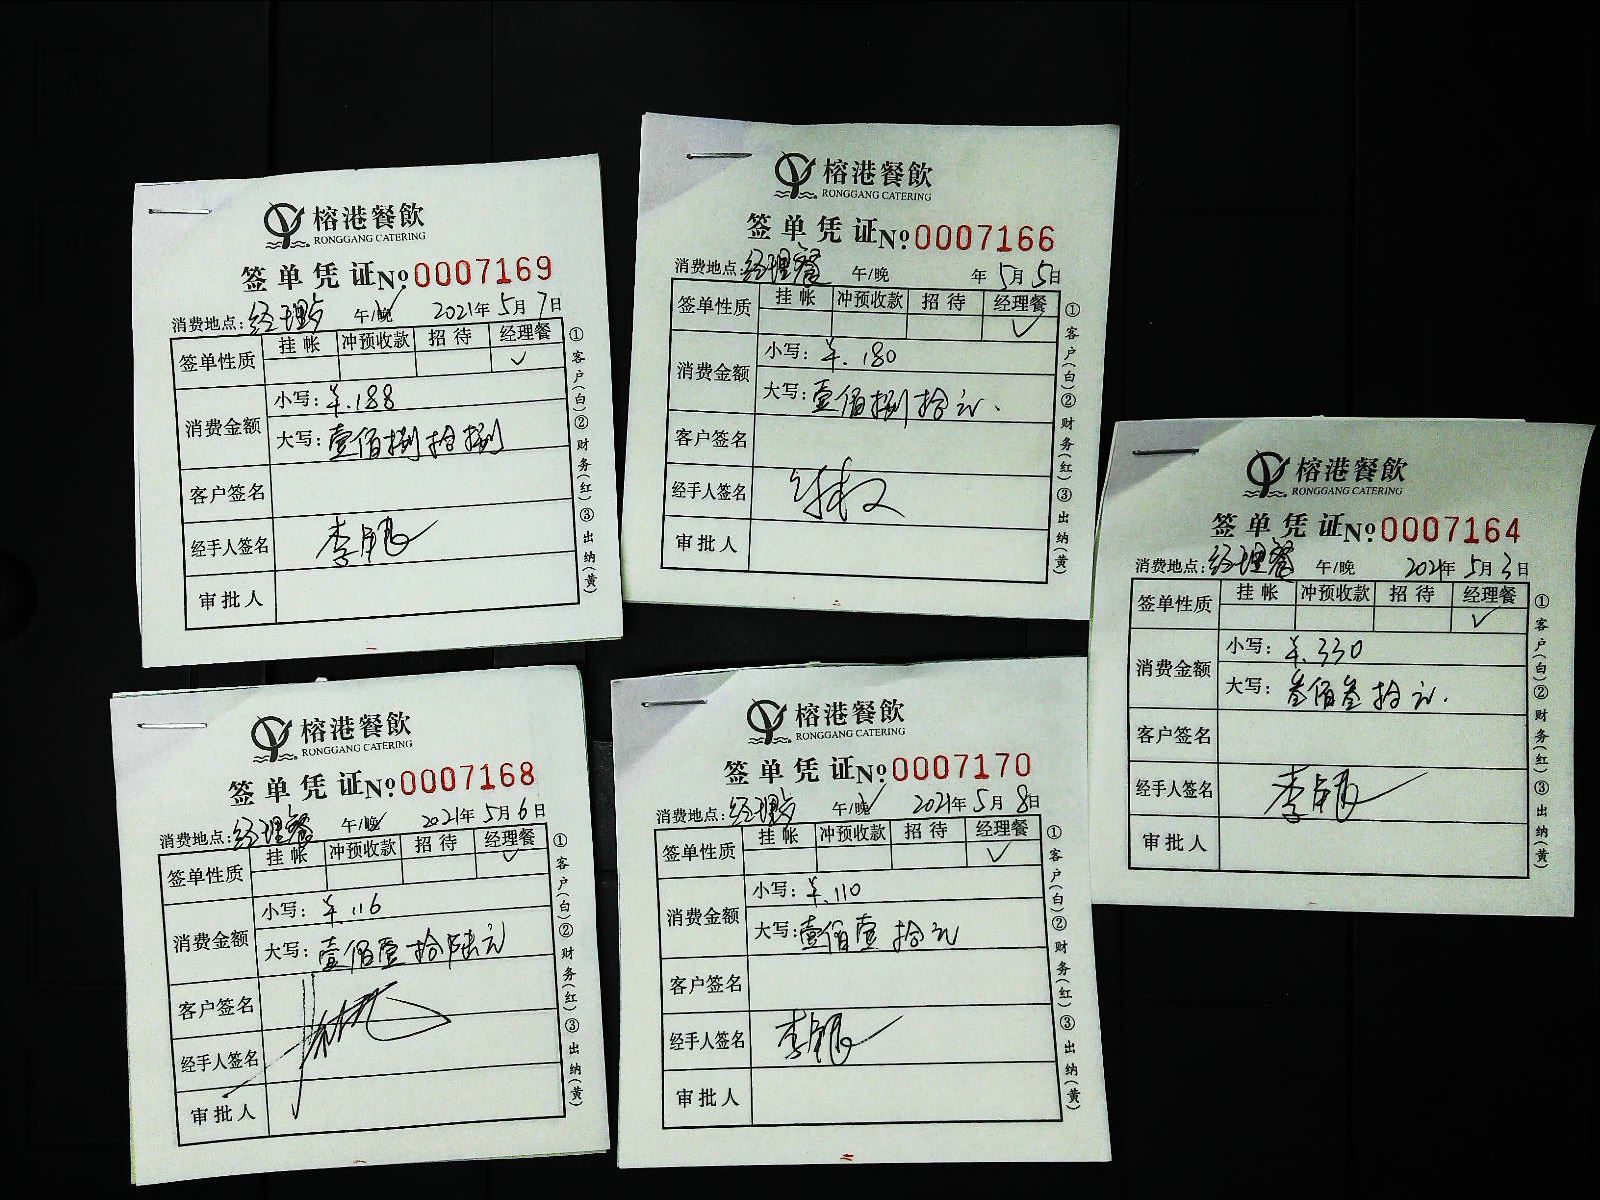 榕港餐飲
RONGGANG CATERING
签单凭证 No 0007169
消费地点: 经理 午/晚 2021年5月7日
签单性质 挂帐 冲预收款 招待 经理餐
✓
消费金额 小写: ¥.188
大写: 壹佰捌拾捌
客户签名
经手人签名 李
审批人
①客户(白)②财务(红)③出纳(黄)
榕港餐飲
RONGGANG CATERING
签单凭证 No 0007166
消费地点: 经理餐 午/晚 年5月5日
签单性质 挂帐 冲预收款 招待 经理餐
✓
消费金额 小写: ¥.180
大写: 壹佰捌拾元.
客户签名
经手人签名
审批人
①客户(白)②财务(红)③出纳(黄)
榕港餐飲
RONGGANG CATERING
签单凭证 No 0007164
消费地点: 经理餐 午/晚 2021年5月3日
签单性质 挂帐 冲预收款 招待 经理餐
✓
消费金额 小写: ¥.330
大写: 叁佰叁拾元.
客户签名
经手人签名 李
审批人
①客户(白)②财务(红)③出纳(黄)
榕港餐飲
RONGGANG CATERING
签单凭证 No 0007168
消费地点: 经理餐 午/晚 2021年5月6日
签单性质 挂帐 冲预收款 招待 经理餐
✓
消费金额 小写: ¥.116
大写: 壹佰壹拾陆元
客户签名
经手人签名
审批人
①客户(白)②财务(红)③出纳(黄)
榕港餐飲
RONGGANG CATERING
签单凭证 No 0007170
消费地点: 经理 午/晚 2021年5月8日
签单性质 挂帐 冲预收款 招待 经理餐
✓
消费金额 小写: ¥.110
大写: 壹佰壹拾元
客户签名
经手人签名 李
审批人
①客户(白)②财务(红)③出纳(黄)